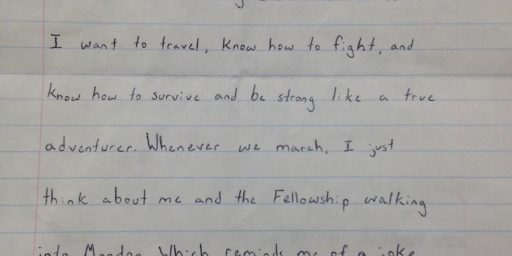 I want to travel, know how to fight, and
know how to survive and be strong like a true
adventurer. Whenever we march, I just
think about me and the Fellowship walking
into Mordor. Which reminds me of a joke